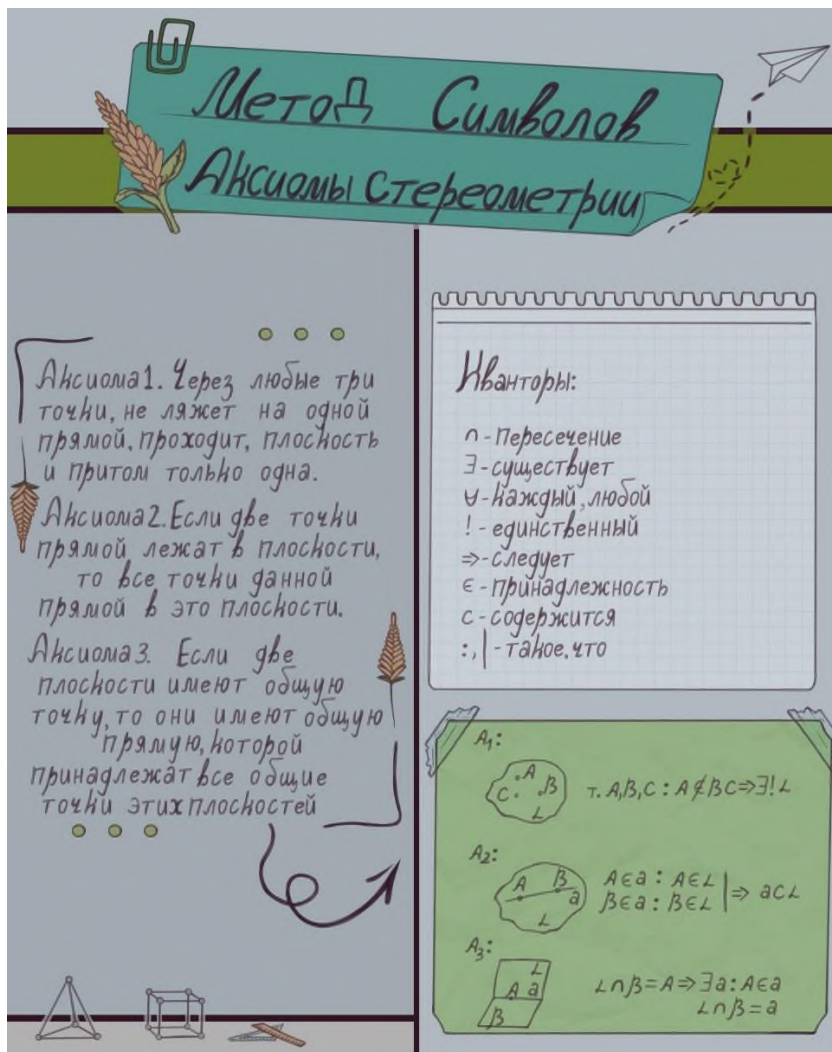 Метод Символов
Аксиомы стереометрии
Аксиома1. Через любые три
точки, не ляжет на одной
прямой, проходит, плоскость
и притом только одна.
Аксиома2. Если две точки
прямой лежат в плоскости,
то все точки данной
прямой в это плоскости.
Аксиома3. Если две
плоскости имеют общую
точку, то они имеют общую
прямую, которой
принадлежат все общие
точки этих плоскостей
Кванторы:
∩ - Пересечение
∃ - существует
∀ - каждый, любой
! - единственный
⇒ - следует
∈ - принадлежность
⊂ - содержится
:, | - такое, что
A₁:
A
C B
∠
т. A,B,C : A∉BC⇒∃!∠
A₂:
A B
a
∠
A∈a : A∈∠
B∈a : B∈∠ | ⇒ a⊂∠
A₃:
∠
A a
B
∠∩β=A⇒∃a:A∈a
∠∩β=a